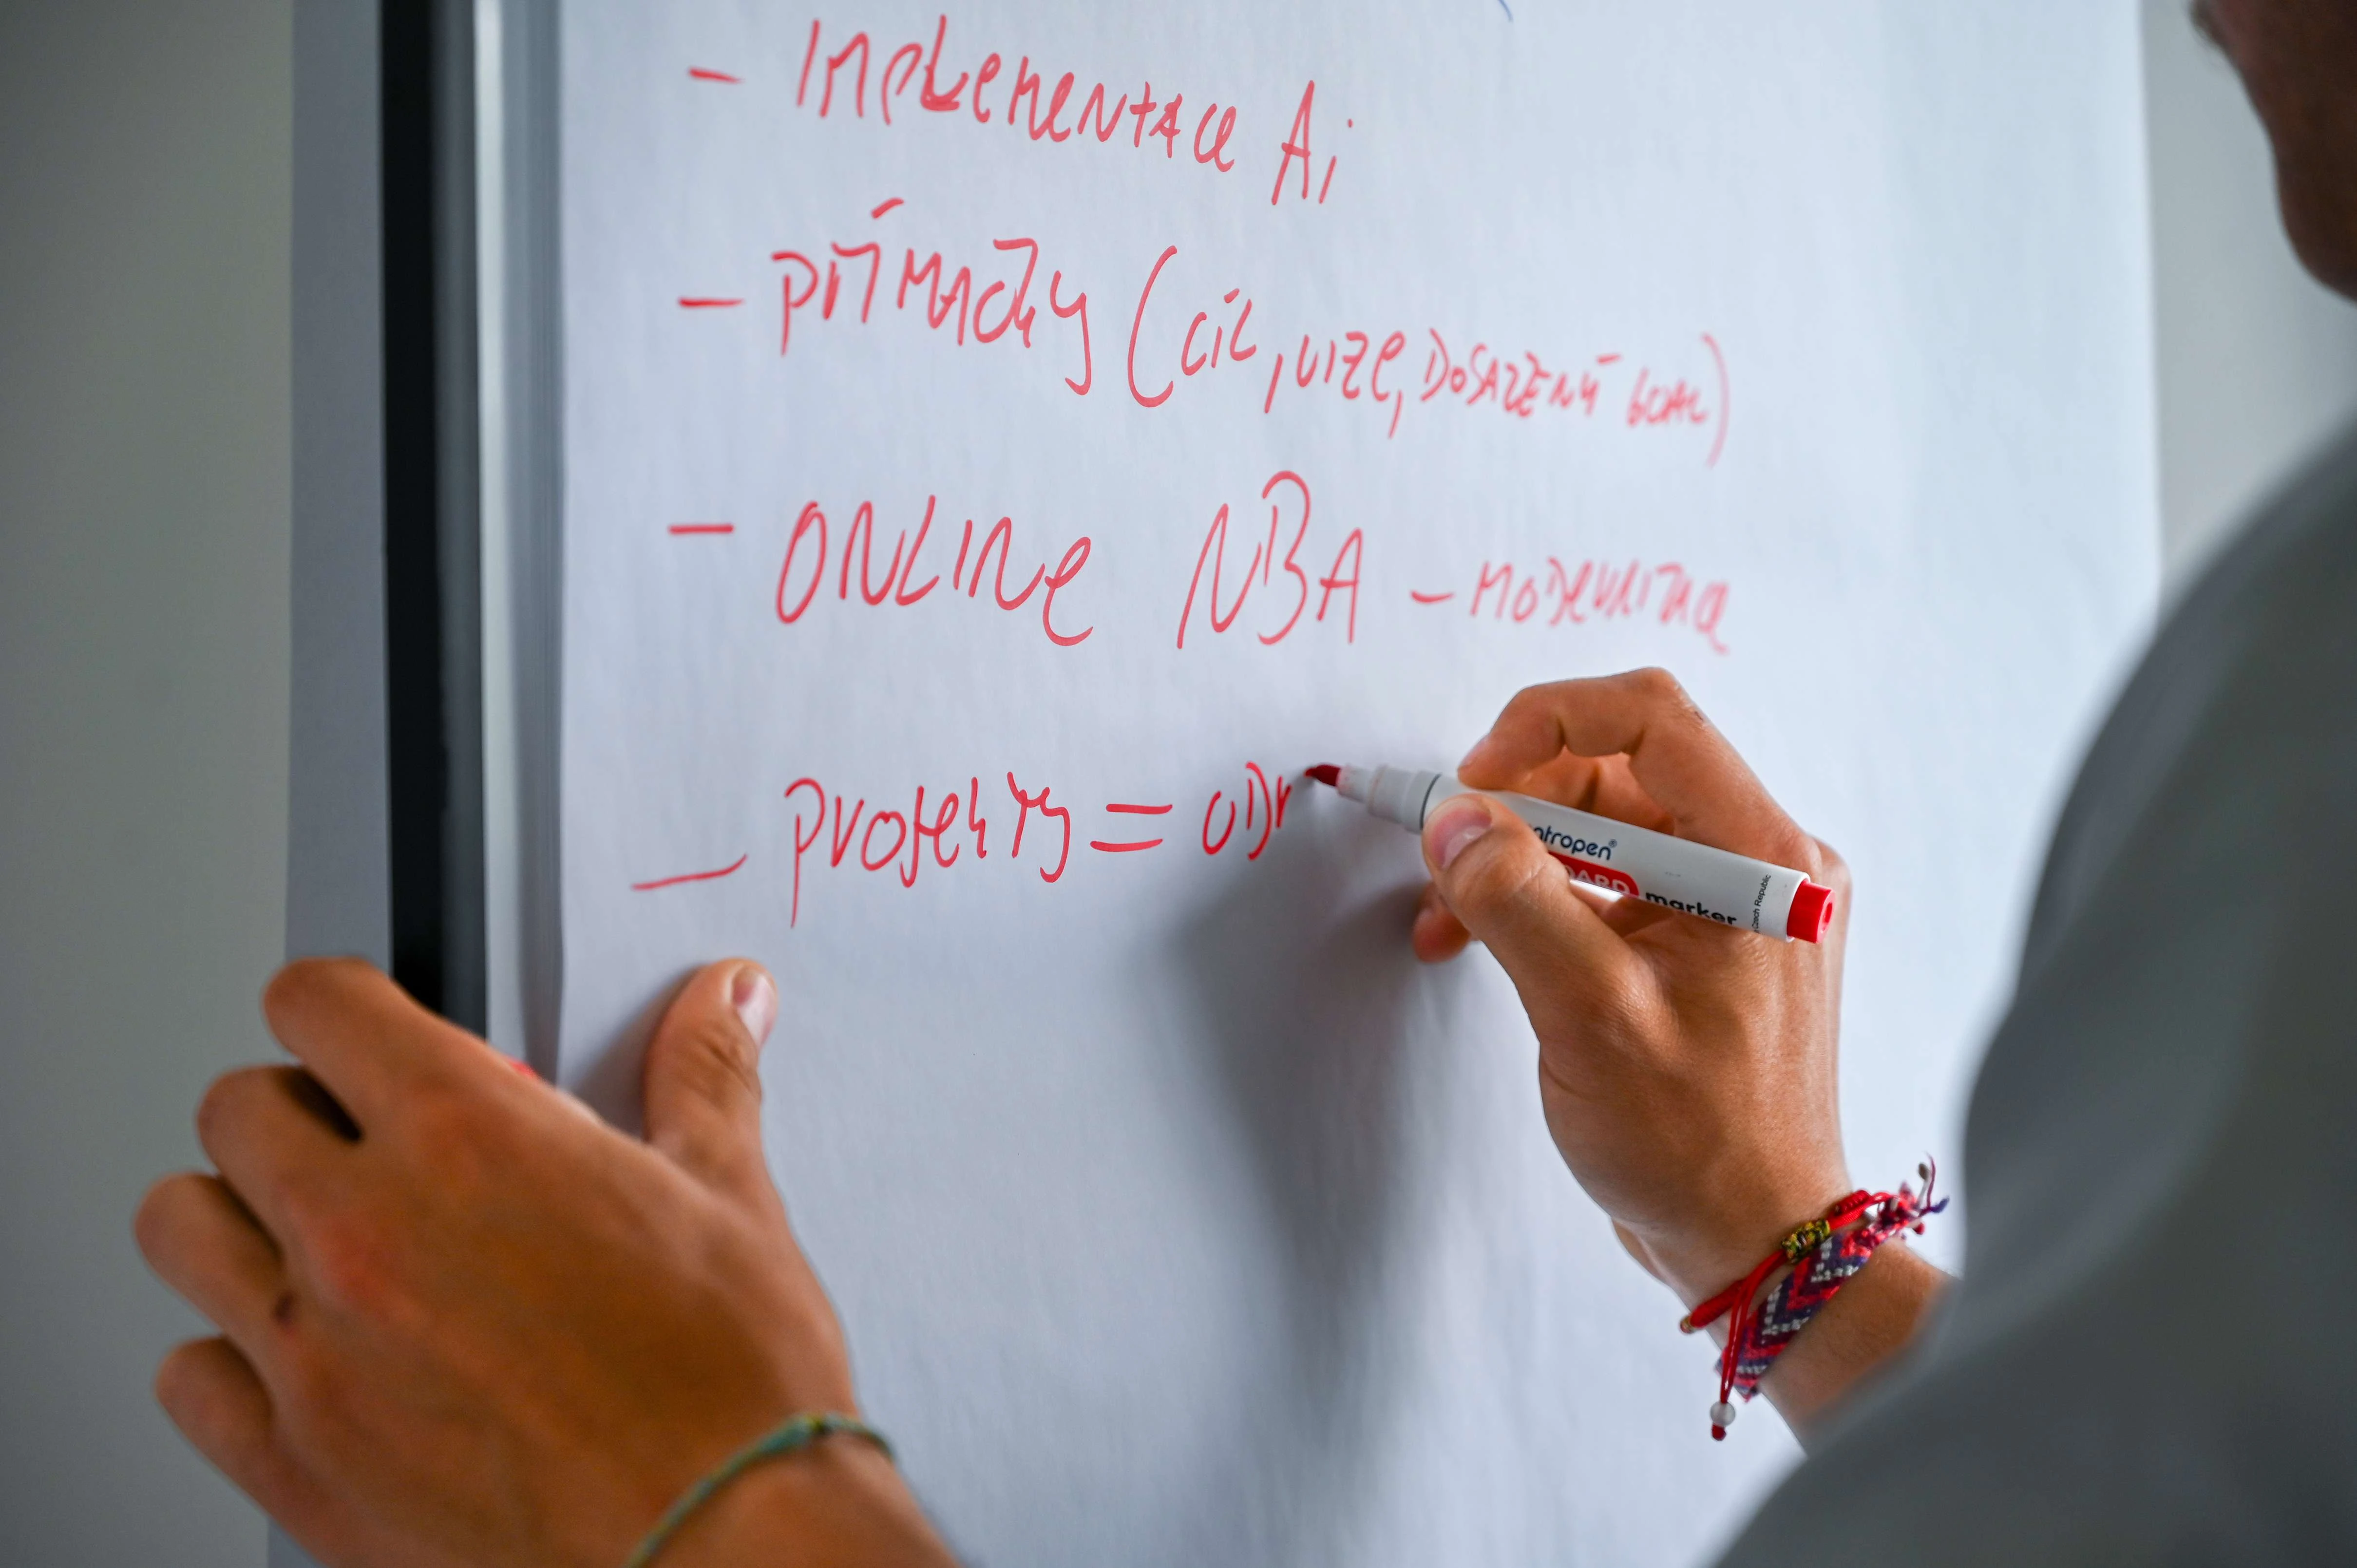 - IMPLEMENTACE Ai
- PŘÍJMAČKY (CÍL, VIZE, DOSAŽENÍ GOAL)
- ONLINE NBA - MODERNIZACE
- projekty = ODr
ntropen®
marker
Czech Republic